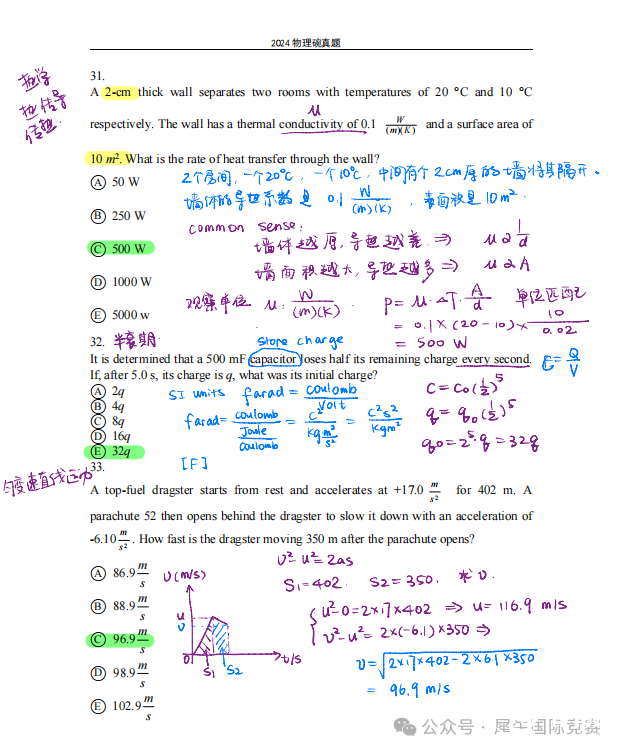 2024 物理碗真题
热学
热传导
传热
31.
A 2-cm thick wall separates two rooms with temperatures of 20 °C and 10 °C
μ
respectively. The wall has a thermal conductivity of 0.1 W/(m)(K) and a surface area of
10 m². What is the rate of heat transfer through the wall?
Ⓐ 50 W
2个房间,一个20℃,一个10℃,中间有个2cm厚的墙将其隔开.
墙体的导热系数是 0.1 W/(m)(K), 表面积是10m².
Ⓑ 250 W
common sense:
Ⓒ 500 W
墙体越厚,导热越差 ⇒ μ∝1/d
墙面积越大,导热越多 ⇒ μ∝A
Ⓓ 1000 W
观察单位 μ: W/(m)(K) P = μ·ΔT·A/d 单位匹配
Ⓔ 5000 w
= 0.1×(20-10)×10/0.02
= 500 W
32. 半衰期
store charge
It is determined that a 500 mF capacitor loses half its remaining charge every second.
C=Q/V
If, after 5.0 s, its charge is q, what was its initial charge?
Ⓐ 2q
Ⓑ 4q
Ⓒ 8q
Ⓓ 16q
Ⓔ 32q
SI units farad = coulomb/Volt
C=C₀(1/2)⁵
farad = coulomb/(Joule/coulomb) = C²/(kg m²/s²) = C²s²/kgm²
q=q₀(1/2)⁵
q₀=2⁵·q=32q
[F]
33.
匀变速直线运动
A top-fuel dragster starts from rest and accelerates at +17.0 m/s² for 402 m. A
parachute 52 then opens behind the dragster to slow it down with an acceleration of
-6.10 m/s². How fast is the dragster moving 350 m after the parachute opens?
v²-u²=2as
Ⓐ 86.9 m/s
Ⓑ 88.9 m/s
Ⓒ 96.9 m/s
Ⓓ 98.9 m/s
Ⓔ 102.9 m/s
v(m/s)
u
v
0
S1
S2
t/s
S1=402. S2=350. 求v.
u²-0=2×17×402 ⇒ u=116.9 m/s
v²-u²=2×(-6.1)×350 ⇒
v=√(2×17×402-2×6.1×350)
= 96.9 m/s
公众号·犀牛国际竞赛